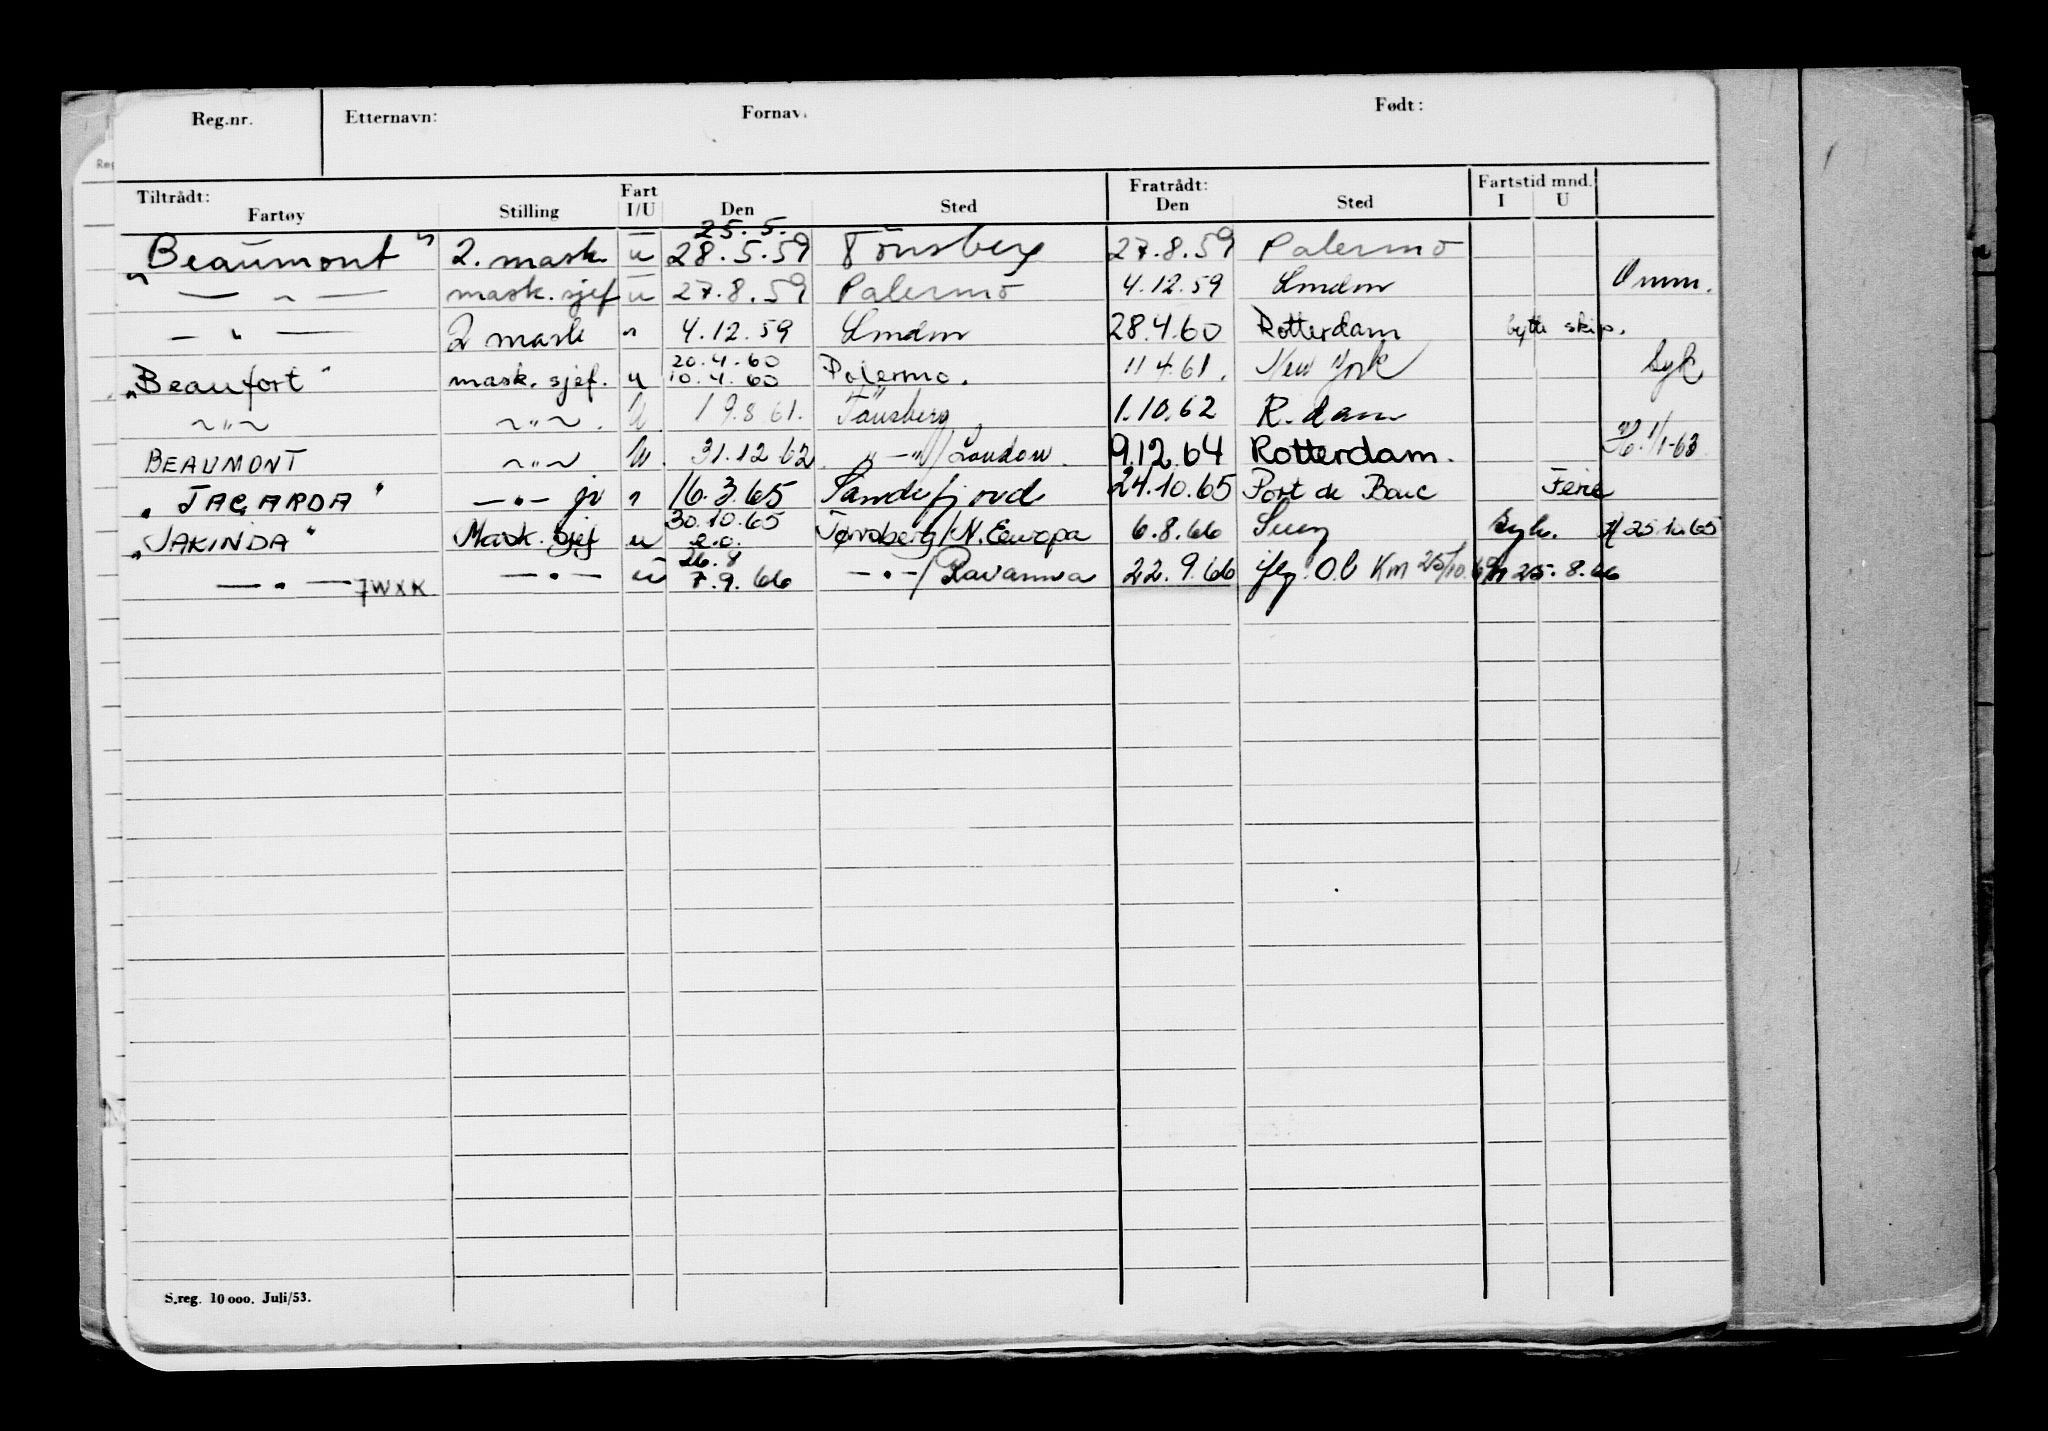 Reg.nr. Etternavn: Fornav. Født:
Tiltrådt: Fart Fratrådt: Fartstid mnd.
Fartøy Stilling I/U Den Sted Den Sted I U
25.5.
"Beaumont" 2. mask u 28.5.59 Tönsberg 27.8.59 Palermo
— " — mask. sjef u 27.8.59 Palermo 4.12.59 Omm.
— " — 2 mask " 4.12.59 28.4.60 Rotterdam bytte skip.
20.4.60
"Beaufort" mask. sjef. u 10.4.60 Palermo. 11 4.61. New York Syk
~ " ~ ~ " ~ . U. 19.8.61. Tönsberg 1.10.62 R.dam
BEAUMONT ~ " ~ U. 31.12 62. " — "/London. 9.12.64 Rotterdam. 1/1-63
"TAGARDA" — " — jr " 16.3.65 Sandefjord 24.10.65 Port de Bouc Ferie
30.10.65
"JAKINDA" Mask. Sjef u e.o. Tønsberg/N. Europa 6.8.66 Suez Syk. 25.10.65
26.8
— " — JWXK — " — u 7.9.66 — " —/Ravanna 22.9.66 25.8.66
S.reg. 10 000. Juli/53.